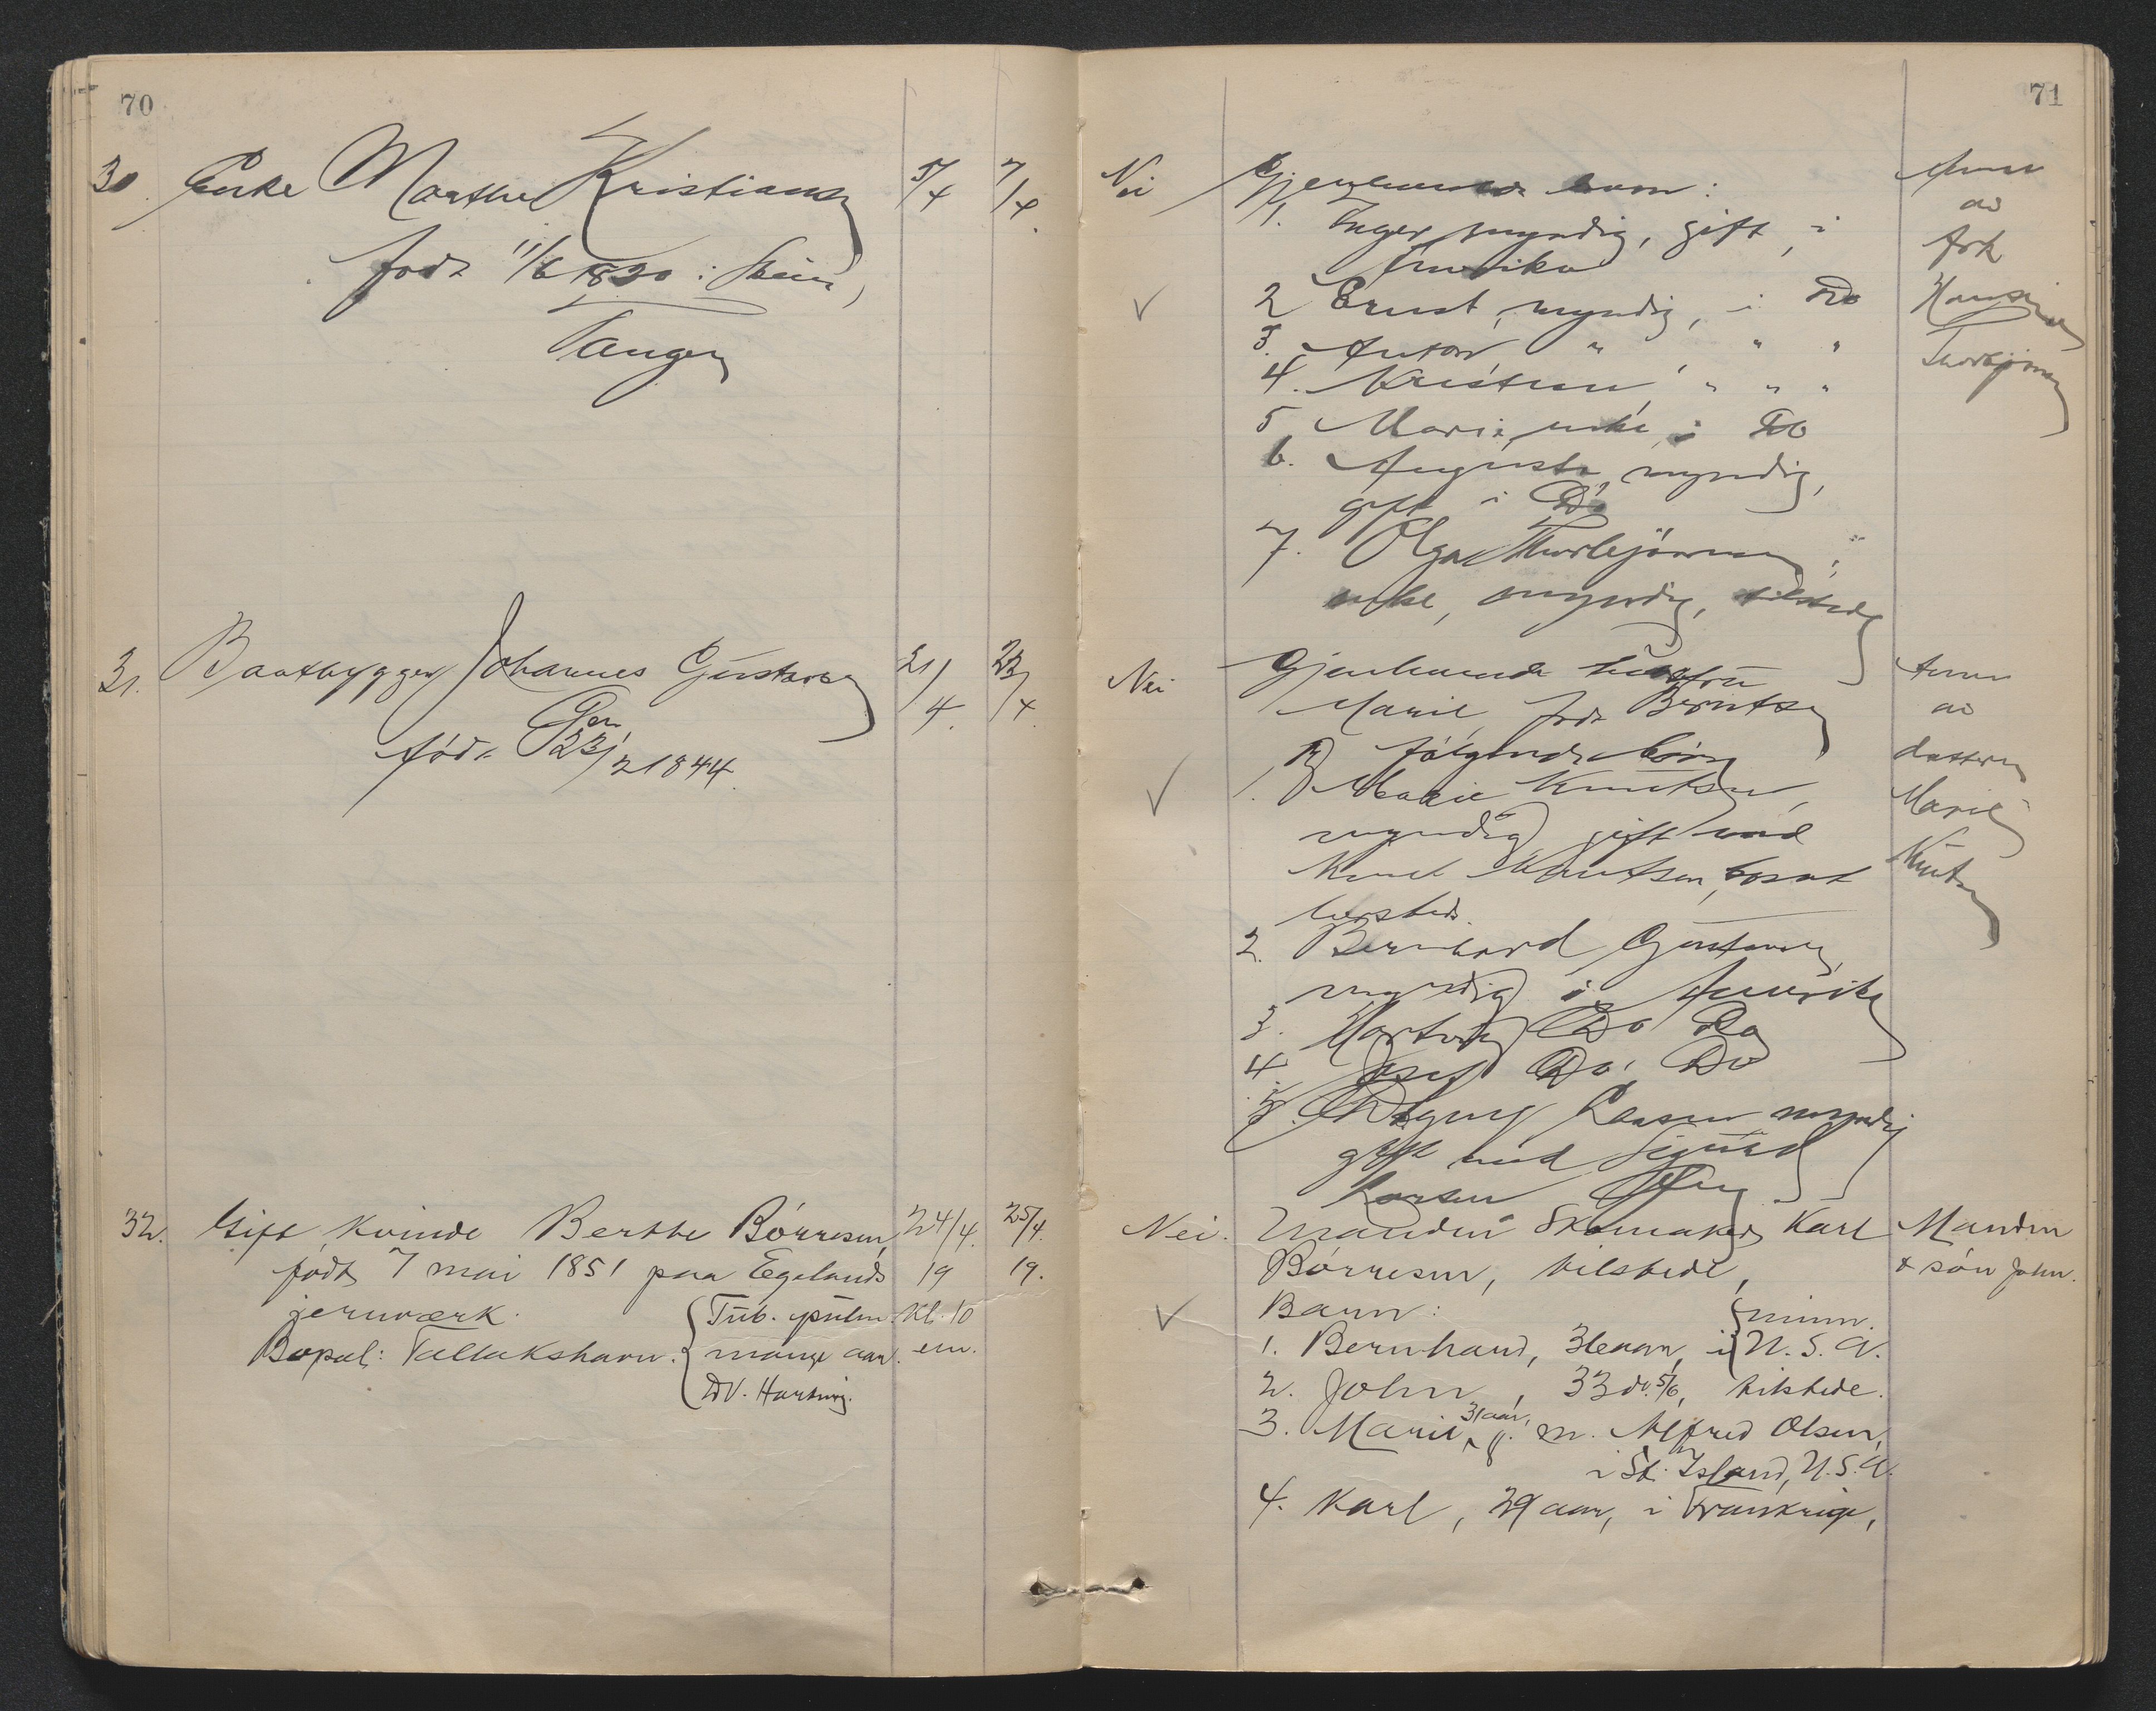 70
30. Enke Marthe Kristiansen 5/4 7/4.
født 11/6 1830 i Skien,
Tangen
31. Baatbygger Johannes Gustavsen 21/4. 23/4.
født 23/2 1844.
32. Gift kvinde Berthe Börresen, 24/4. 25/4.
født 7 mai 1851 paa Egelands 19 19.
jernværk. Tub. pulm. Kl. 10
Bopæl: Tallakshavn. mange aar. em.
Dr. Hartvig.
71
Nei Gjenlevende barn:
1. Inger, myndig, gift, i
Amerika
2 Ernst, myndig, i Do
3. Anton " " "
4. Kristian, " " "
5 Marie, enke, i Do
6. Augusta, myndig,
gift i Do
7. Olga Thorbjörnsen,
enke, myndig, tilstede
Anm
av
frk
Hansine
Thorbjörnsen
Nei Gjenlevende hustru
Marie, født Berntsen
følgende børn
1. Marie Knutsen,
myndig gift med
Knut Knutsen, bosat
hersteds.
2. Bernhard Gustavsen,
myndig i Amerika
3. Hartvig Do Do
4 Josef Do. Do
5. Dagny Larsen myndig
gift med Sigurd
Larsen
Anm
av
datteren
Marie
Knutsen
Nei. Manden Skomaker Karl
Börresen, tilstede,
Barn:
1. Bernhard, 36 aar, i U.S.A.
2. John, 33 do. 5/6, tilstede.
3. Marie, 31 aar, g. m. Alfred Olsen,
i St. Island, U.S.A.
4. Karl, 29 aar, i Frankrige,
Manden
& sön John.